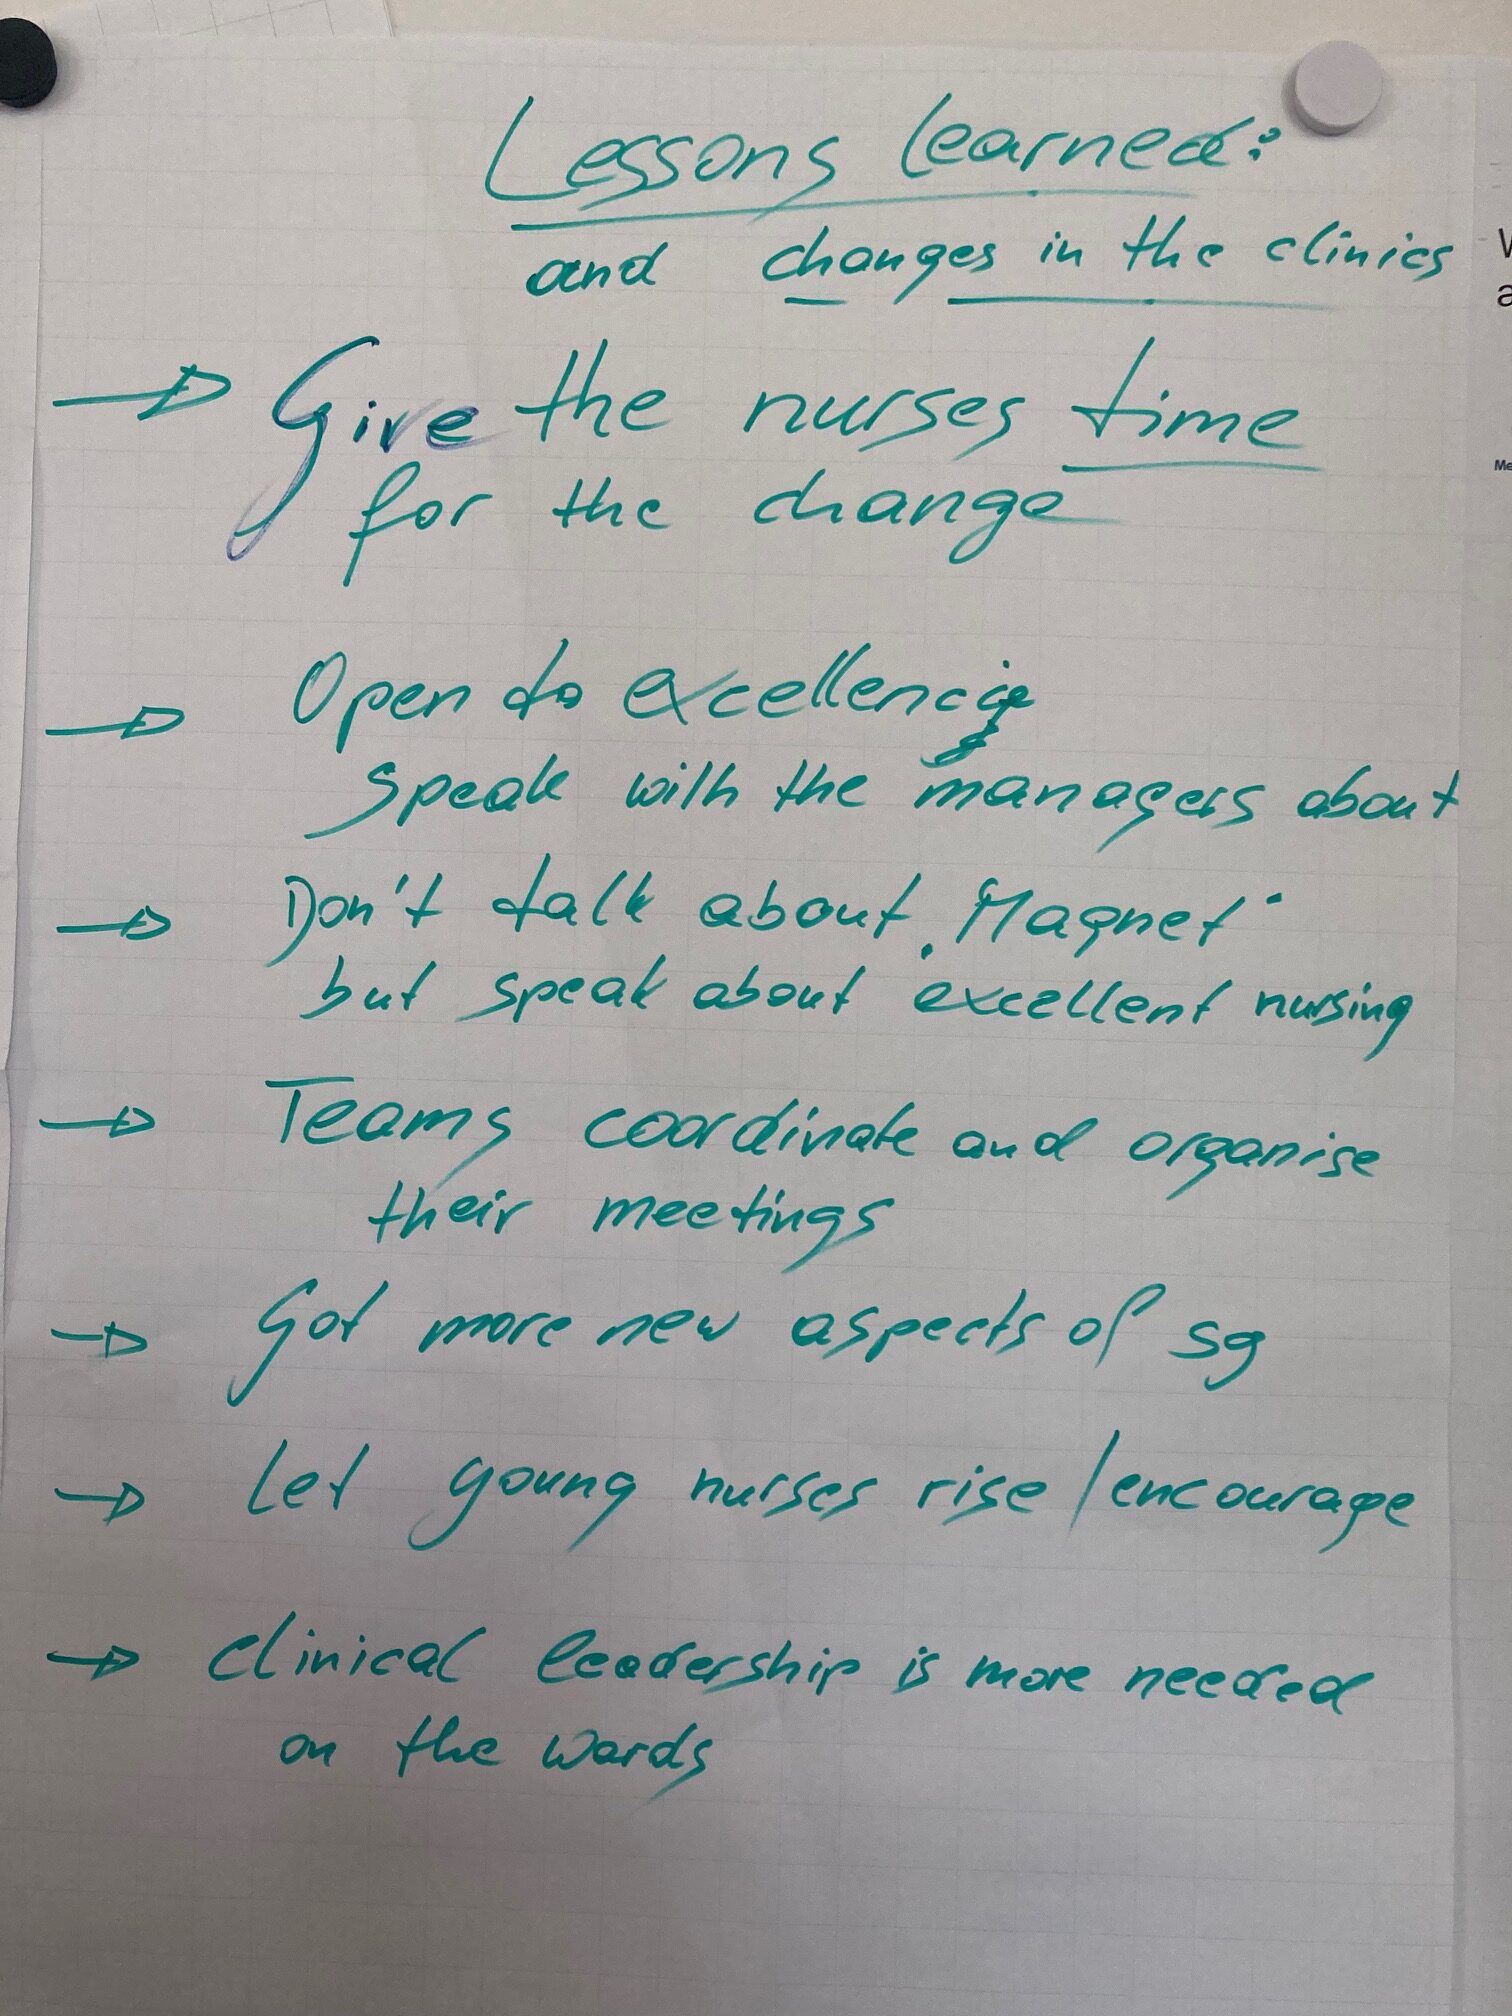 Lessons learned:
and changes in the clinics
Give the nurses time
for the change
Open to excellence
speak with the managers about
Don't talk about "Magnet"
but speak about excellent nursing
Teams coordinate and organise
their meetings
Got more new aspects of sg
Let young nurses rise / encourage
clinical leadership is more needed
on the wards